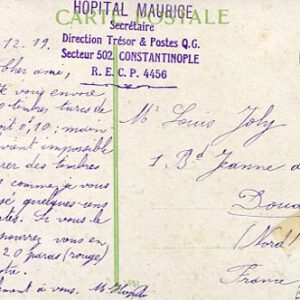 CARTE POSTALE
HOPITAL MAURICE
Secrétaire
Direction Trésor & Postes Q.G.
Secteur 502. CONSTANTINOPLE
R. E. C. P. 4456
12. 19.
cher ami,
vous envoie
timbres, turcs de
0,10; main-
vant impossible
rer des timbres
comme je vous
sé quelques-uns
tes. Si vous le
pourrez vous en
20 paras (rouge)
tre.
ment à vous.
Mr Louis Joly
1 Bd Jeanne d
Doua
(Nord)
France